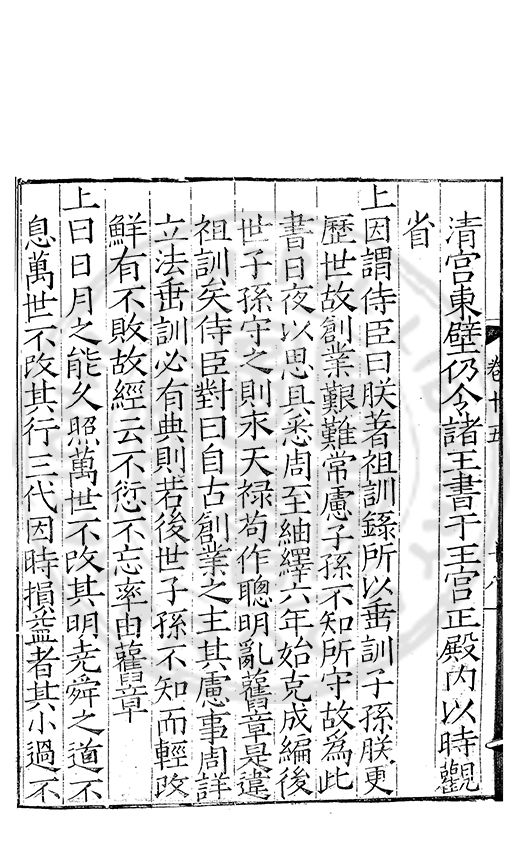 清宮東壁仍令諸王書于王宮正殿內以時觀
省
上因謂侍臣曰朕著祖訓錄所以垂訓子孫朕更
歷世故創業艱難常慮子孫不知所守故為此
書日夜以思具悉周至紬繹六年始克成編後
世子孫守之則永天祿苟作聰明亂舊章是違
祖訓矣侍臣對曰自古創業之主其慮事周詳
立法垂訓必有典則若後世子孫不知而輕改
鮮有不敗故經云不愆不忘率由舊章
上曰日月之能久照萬世不改其明堯舜之道不
息萬世不改其行三代因時損益者其小過不
卷十五
八